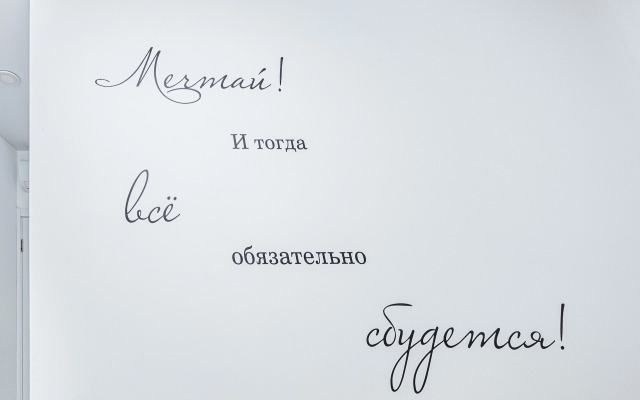 Мечтай!
И тогда
всё
обязательно
сбудется!